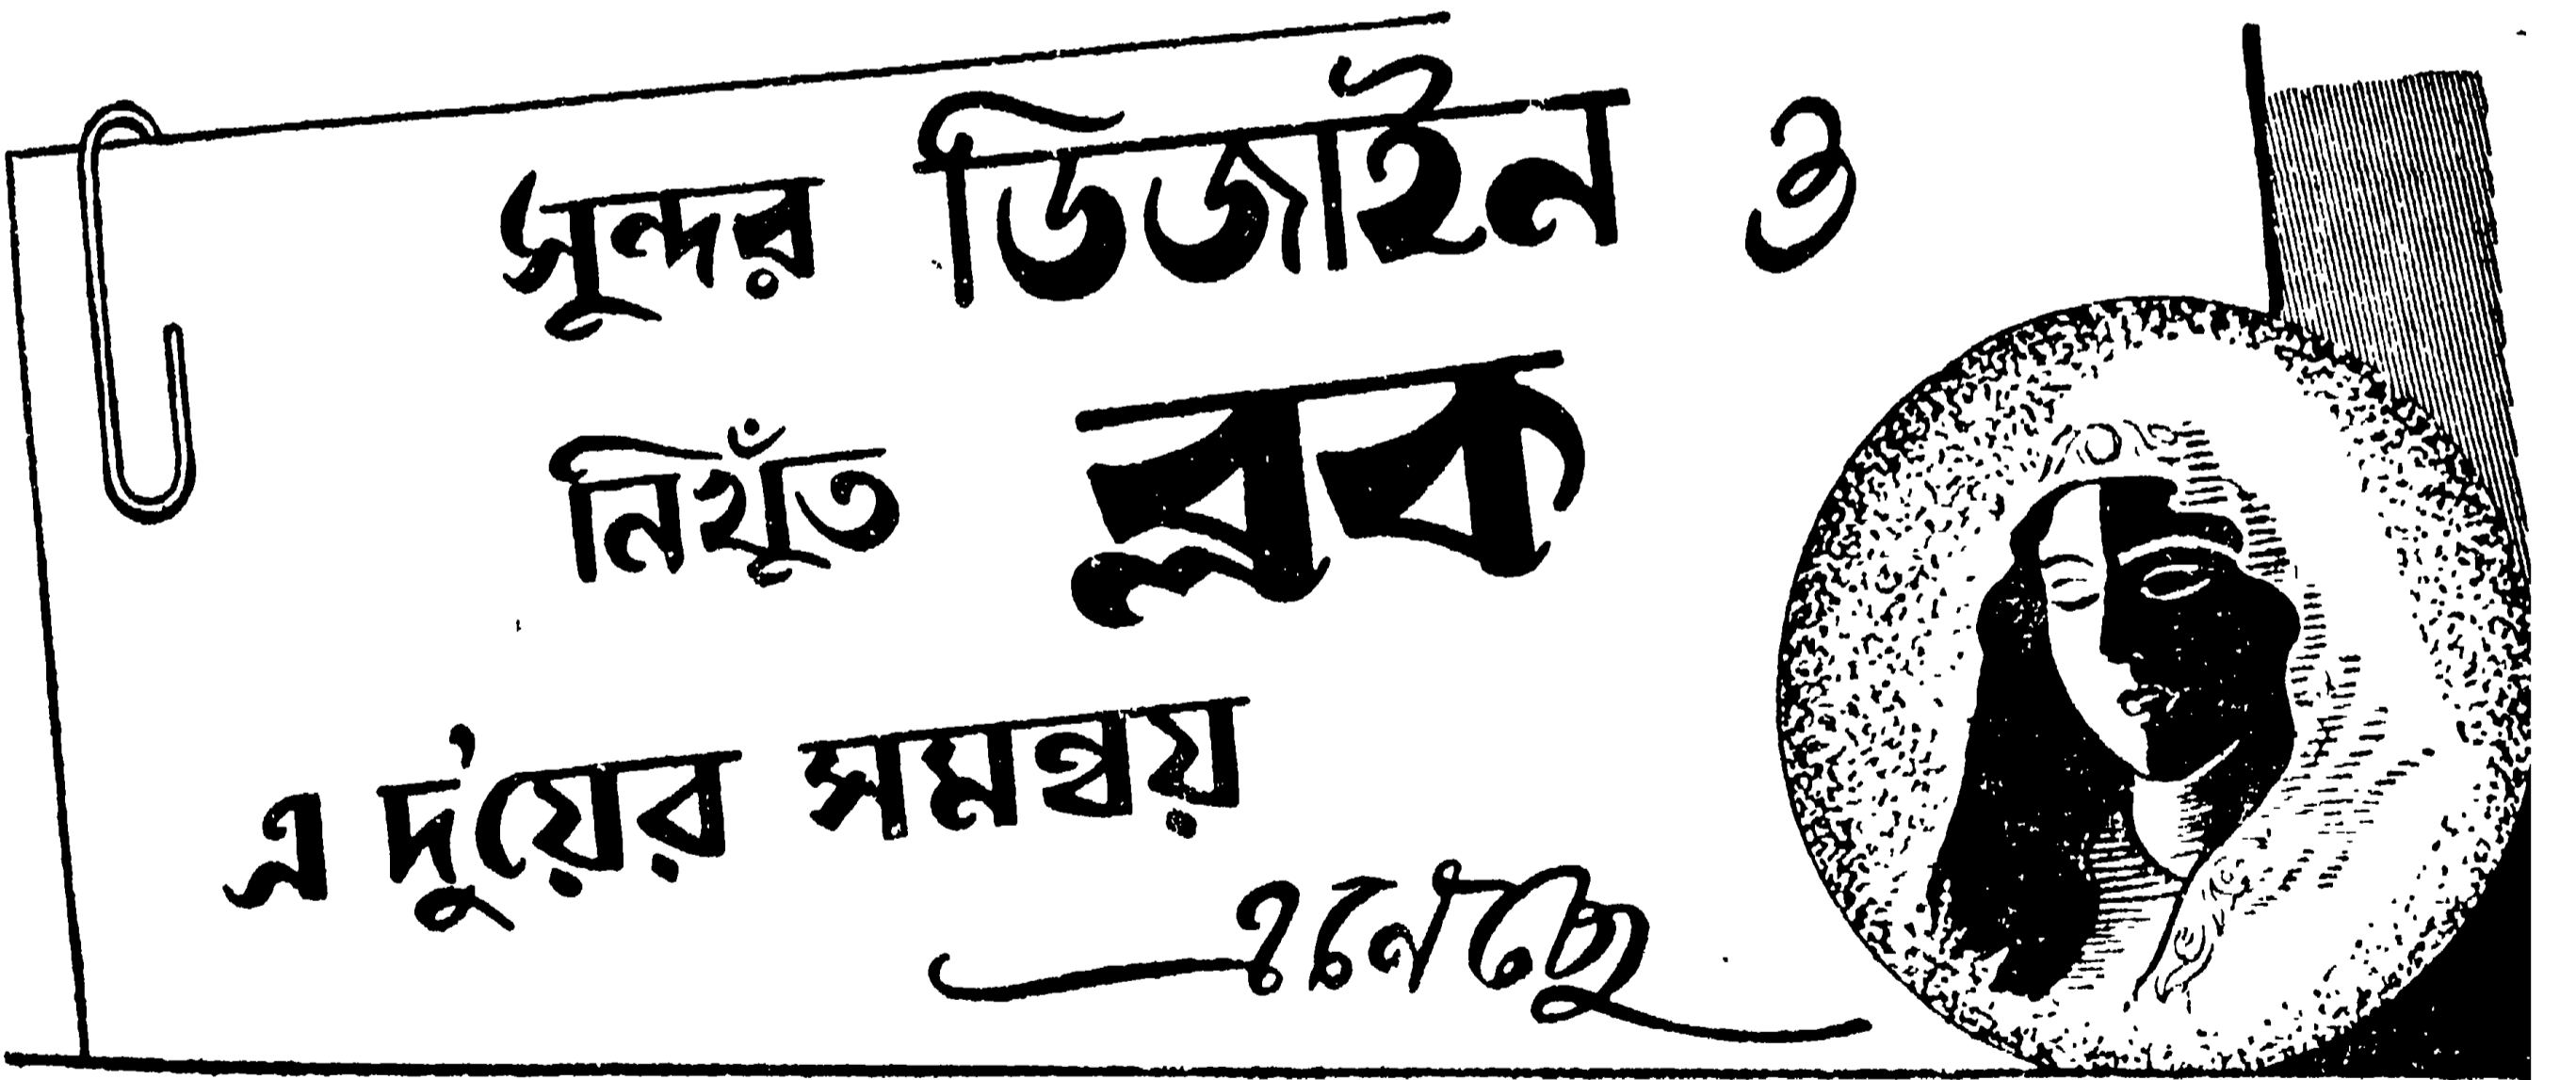 সুন্দর ডিজাইন ও
নিখুঁত ব্লক
এ দু'য়ের সমন্বয়
এনেছে